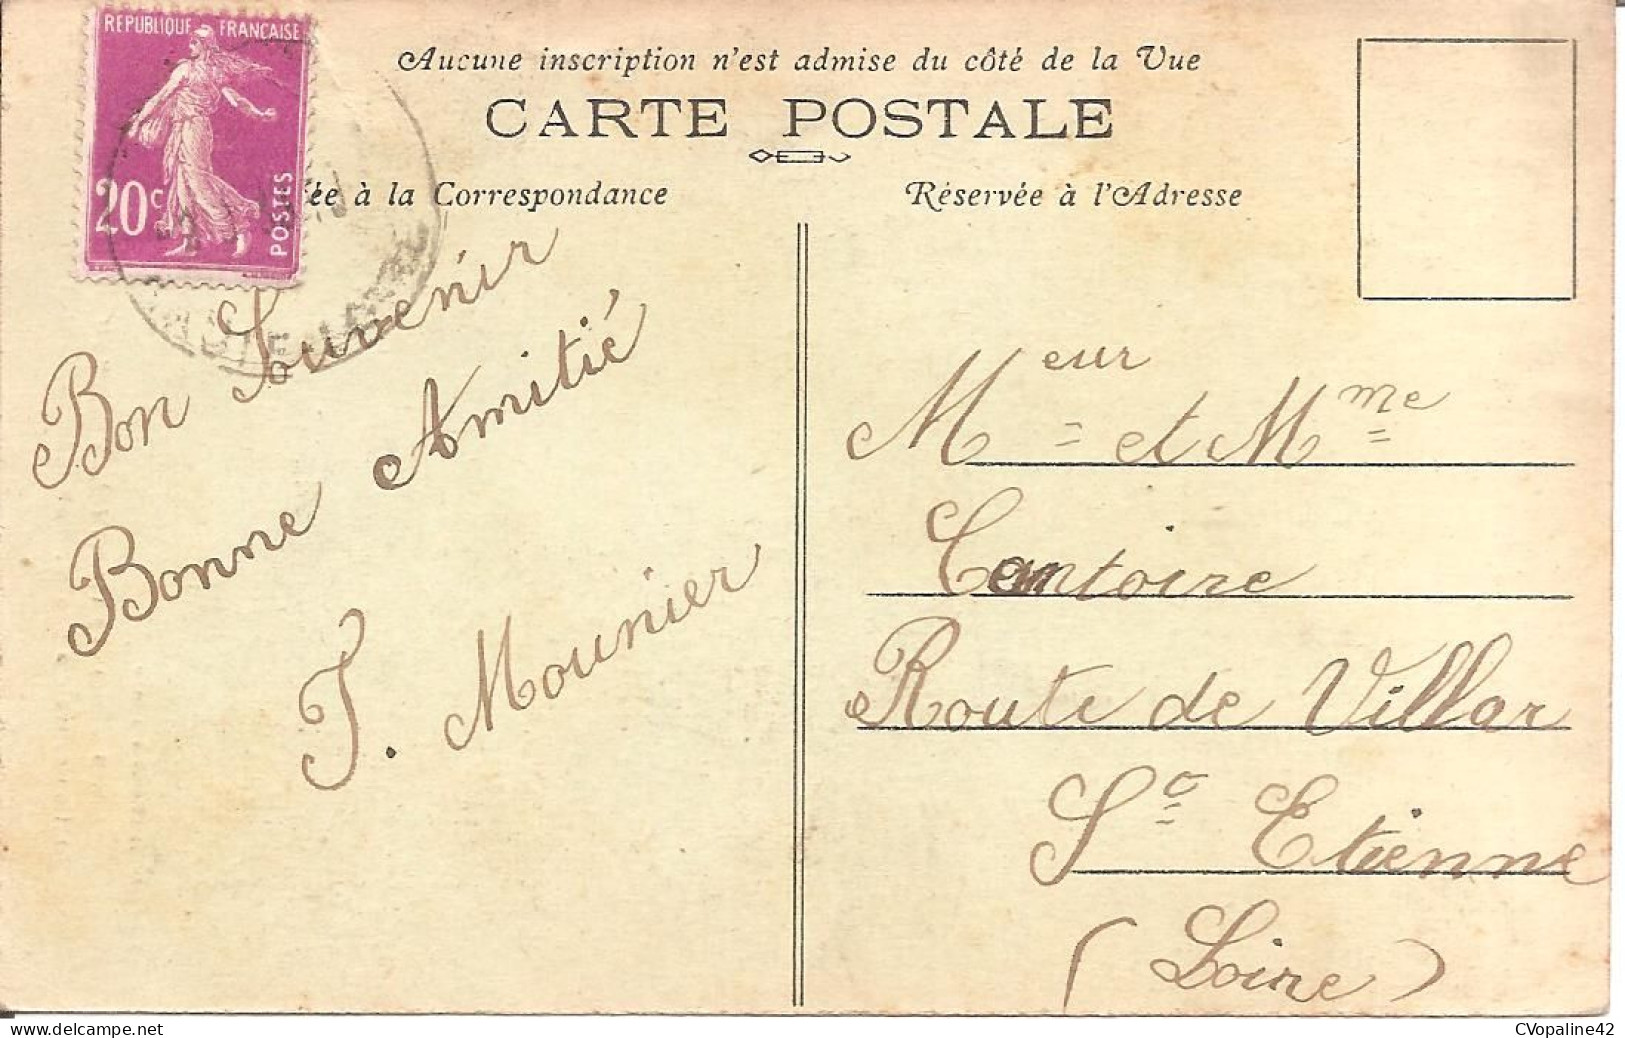 REPUBLIQUE FRANÇAISE
20c
POSTES
Aucune inscription n'est admise du côté de la Vue
CARTE POSTALE
ée à la Correspondance
Réservée à l'Adresse
Bon Souvenir
Bonne Amitié
J. Mounier
Meur et Mme
Cantoire
Route de Villar
St Etienne
(Loire)
CVopaline42